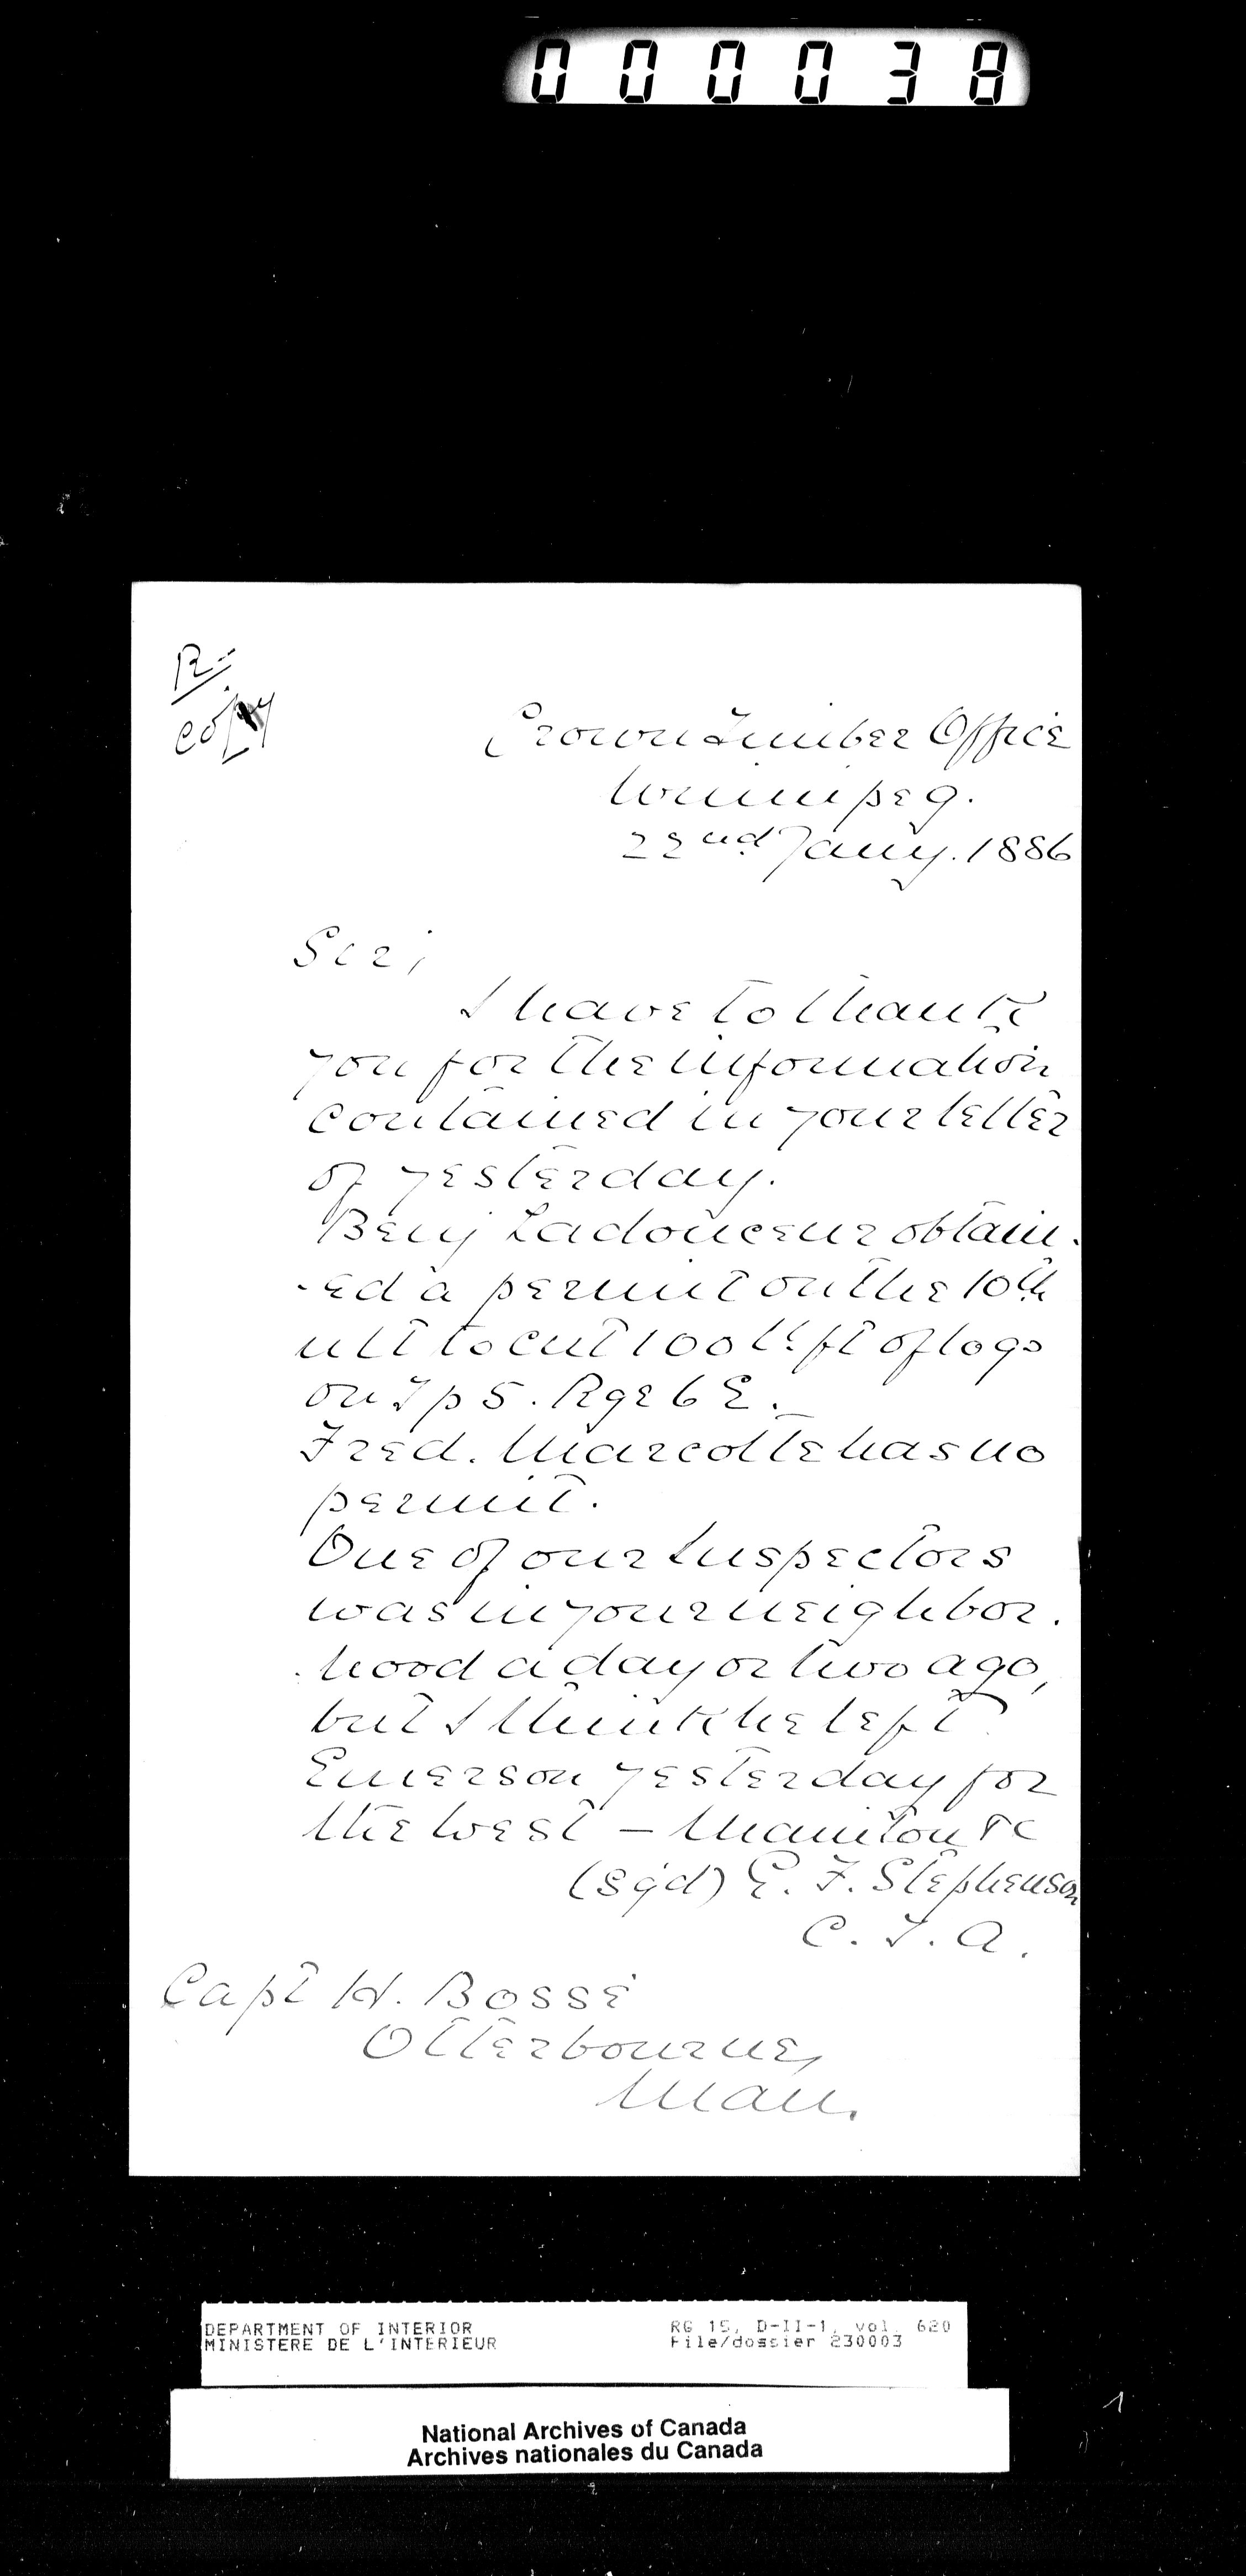 000038
R-
copy
Crown Timber Office
Winnipeg.
22nd Jany. 1886
Sir,
I have to thank
you for the information
contained in your letter
of yesterday.
Benj Ladouceur obtain-
-ed a permit on the 10th
ult to cut 100 l. ft of logs
on Tp 5. Rge 6 E.
Fred. Marcotte has no
permit.
One of our Inspectors
was in your neighbor-
-hood a day or two ago,
but I think he left
Emerson yesterday for
the West - Manitou &c
(sgd) E. F. Stephenson
C. T. A.
Capt H. Bossé
Otterbourne,
Man.
DEPARTMENT OF INTERIOR RG 15, D-II-1, vol. 620
MINISTERE DE L'INTERIEUR File/dossier 230003
National Archives of Canada
Archives nationales du Canada